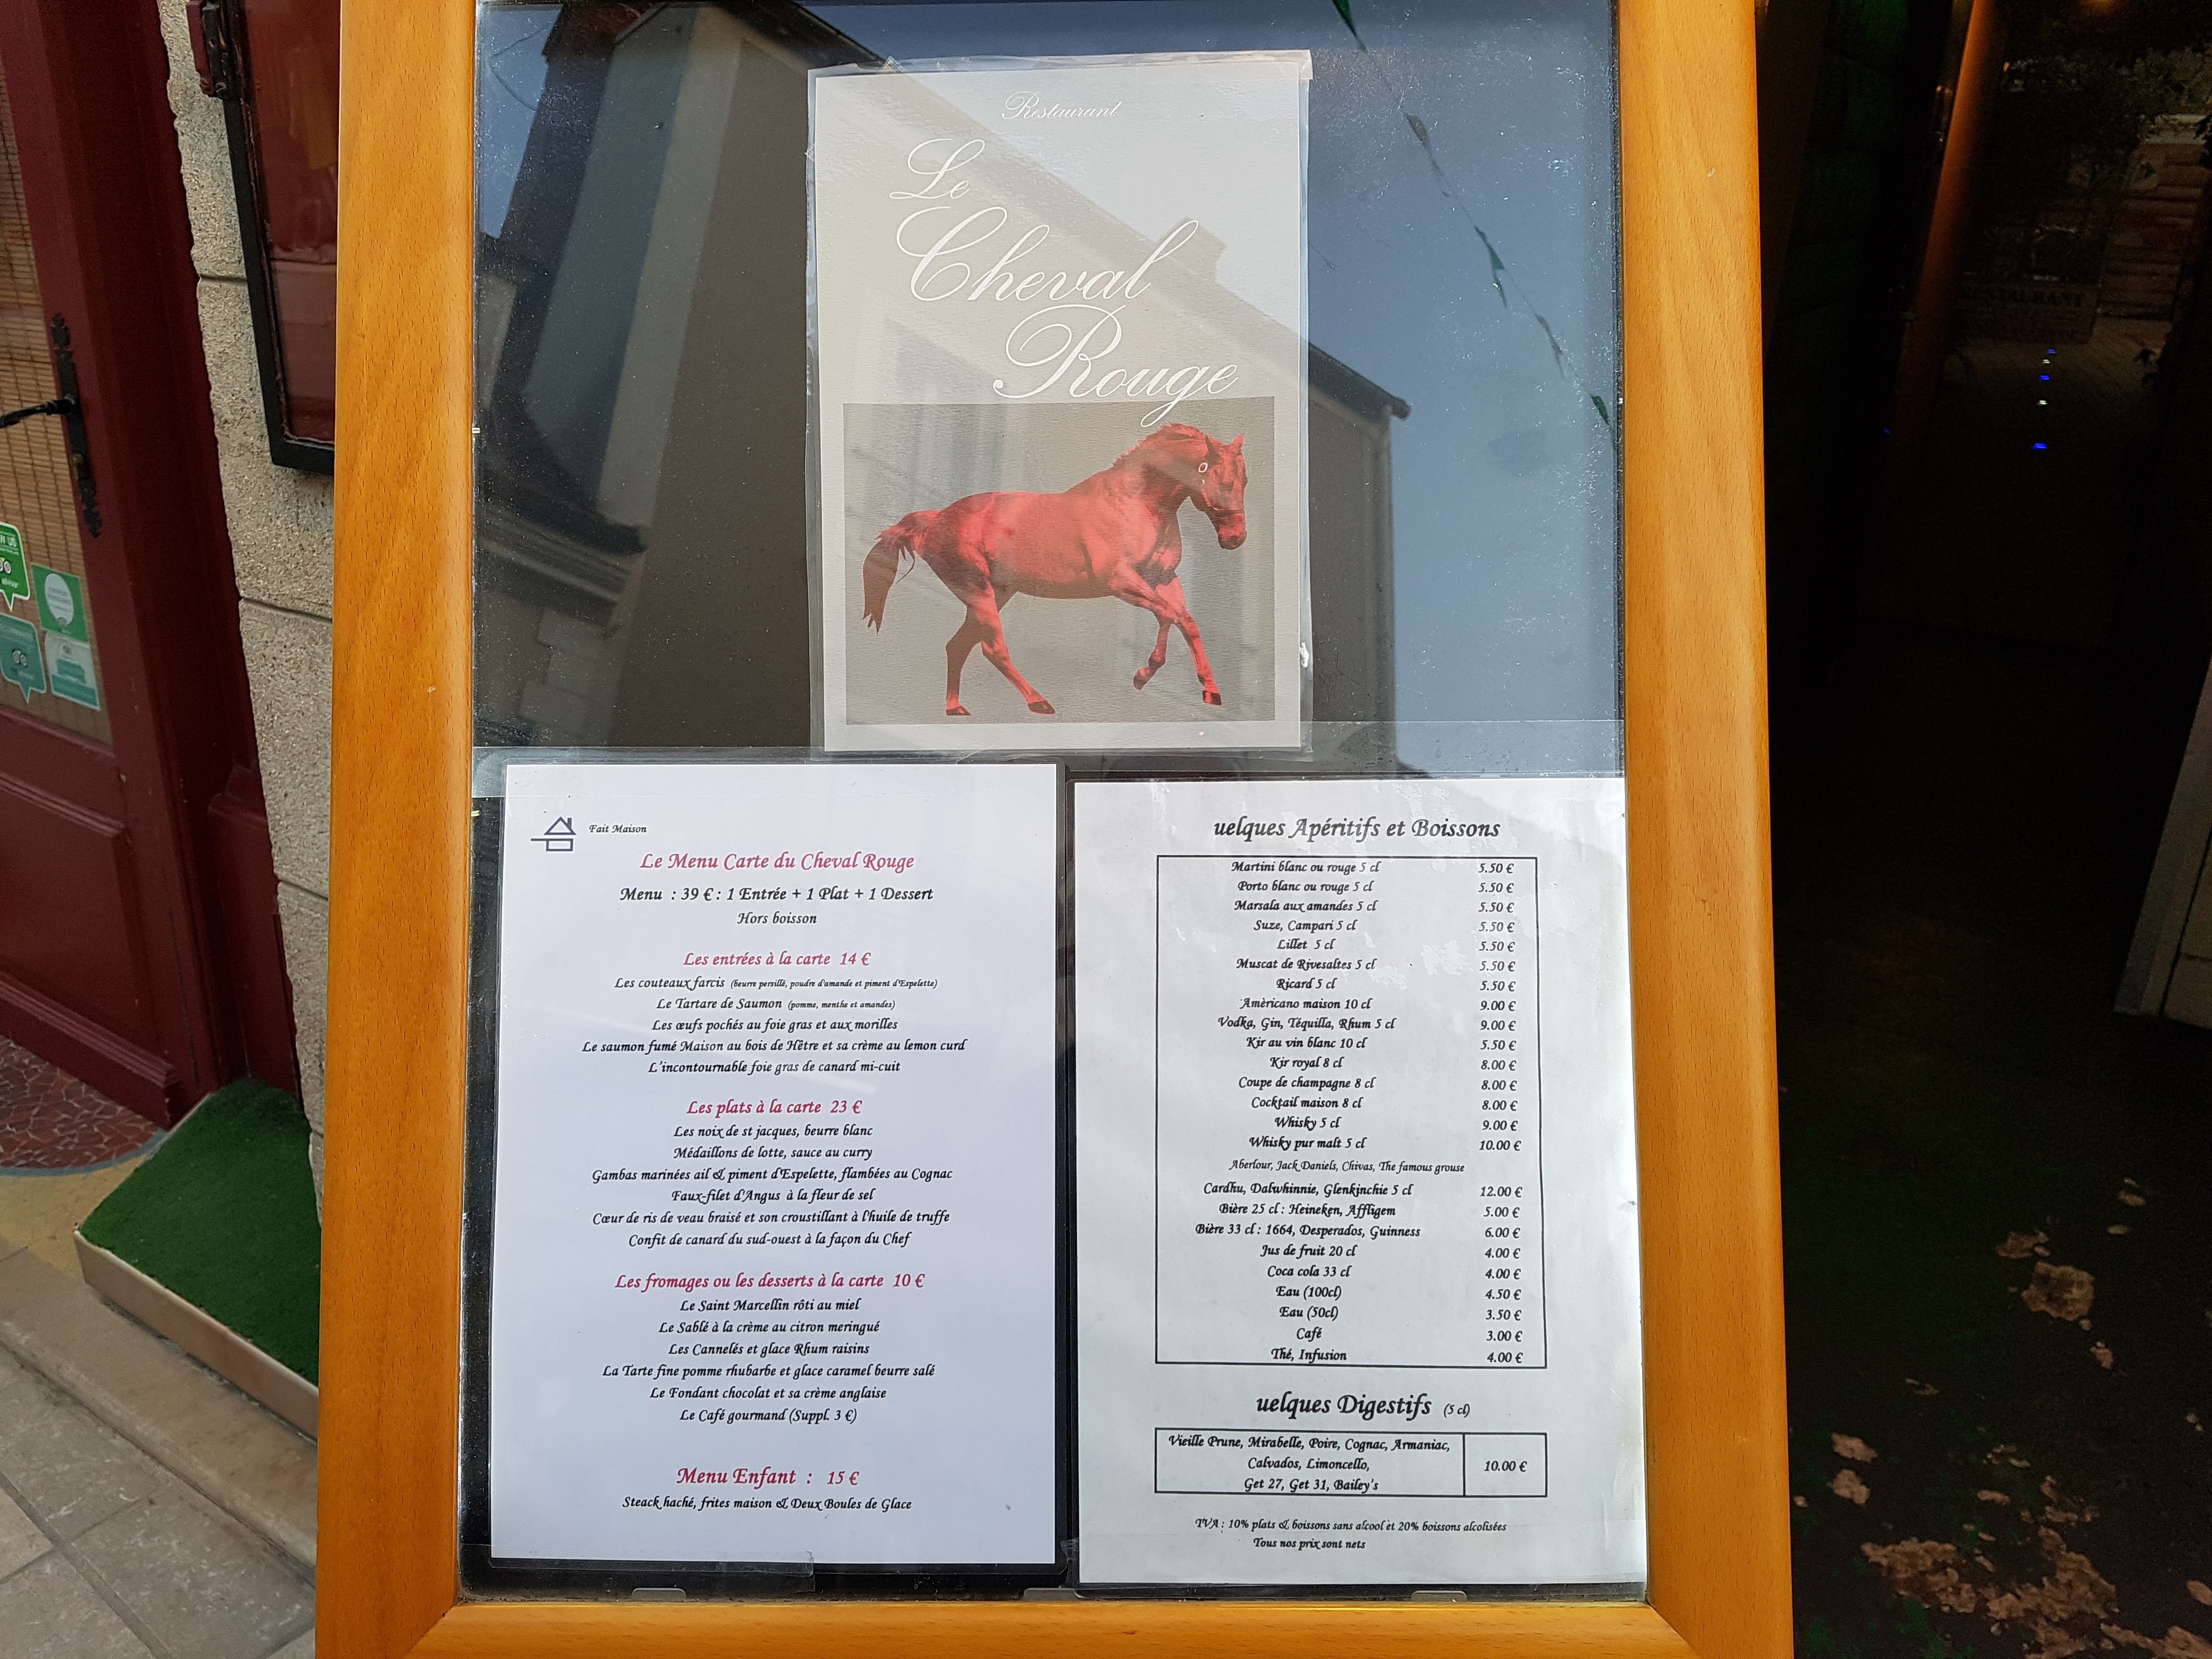 Restaurant
Le
Cheval
Rouge
Fait Maison
Le Menu Carte du Cheval Rouge
Menu : 39 € : 1 Entrée + 1 Plat + 1 Dessert
Hors boisson
Les entrées à la carte 14 €
Les couteaux farcis (beurre persillé, poudre d'amande et piment d'Espelette)
Le Tartare de Saumon (pomme, menthe et amandes)
Les œufs pochés au foie gras et aux morilles
Le saumon fumé Maison au bois de Hêtre et sa crème au lemon curd
L'incontournable foie gras de canard mi-cuit
Les plats à la carte 23 €
Les noix de st jacques, beurre blanc
Médaillons de lotte, sauce au curry
Gambas marinées ail & piment d'Espelette, flambées au Cognac
Faux-filet d'Angus à la fleur de sel
Cœur de ris de veau braisé et son croustillant à l'huile de truffe
Confit de canard du sud-ouest à la façon du Chef
Les fromages ou les desserts à la carte 10 €
Le Saint Marcellin rôti au miel
Le Sablé à la crème au citron meringué
Les Cannelés et glace Rhum raisins
La Tarte fine pomme rhubarbe et glace caramel beurre salé
Le Fondant chocolat et sa crème anglaise
Le Café gourmand (Suppl. 3 €)
Menu Enfant : 15 €
Steack haché, frites maison & Deux Boules de Glace
uelques Apéritifs et Boissons
Martini blanc ou rouge 5 cl 5.50 €
Porto blanc ou rouge 5 cl 5.50 €
Marsala aux amandes 5 cl 5.50 €
Suze, Campari 5 cl 5.50 €
Lillet 5 cl 5.50 €
Muscat de Rivesaltes 5 cl 5.50 €
Ricard 5 cl 5.50 €
Amèricano maison 10 cl 9.00 €
Vodka, Gin, Téquilla, Rhum 5 cl 9.00 €
Kir au vin blanc 10 cl 5.50 €
Kir royal 8 cl 8.00 €
Coupe de champagne 8 cl 8.00 €
Cocktail maison 8 cl 8.00 €
Whisky 5 cl 9.00 €
Whisky pur malt 5 cl 10.00 €
Aberlour, Jack Daniels, Chivas, The famous grouse
Cardhu, Dalwhinnie, Glenkinchie 5 cl 12.00 €
Bière 25 cl : Heineken, Affligem 5.00 €
Bière 33 cl : 1664, Desperados, Guinness 6.00 €
Jus de fruit 20 cl 4.00 €
Coca cola 33 cl 4.00 €
Eau (100cl) 4.50 €
Eau (50cl) 3.50 €
Café 3.00 €
Thé, Infusion 4.00 €
uelques Digestifs (5 cl)
Vieille Prune, Mirabelle, Poire, Cognac, Armaniac,
Calvados, Limoncello, 10.00 €
Get 27, Get 31, Bailey's
TVA : 10% plats & boissons sans alcool et 20% boissons alcolisées
Tous nos prix sont nets